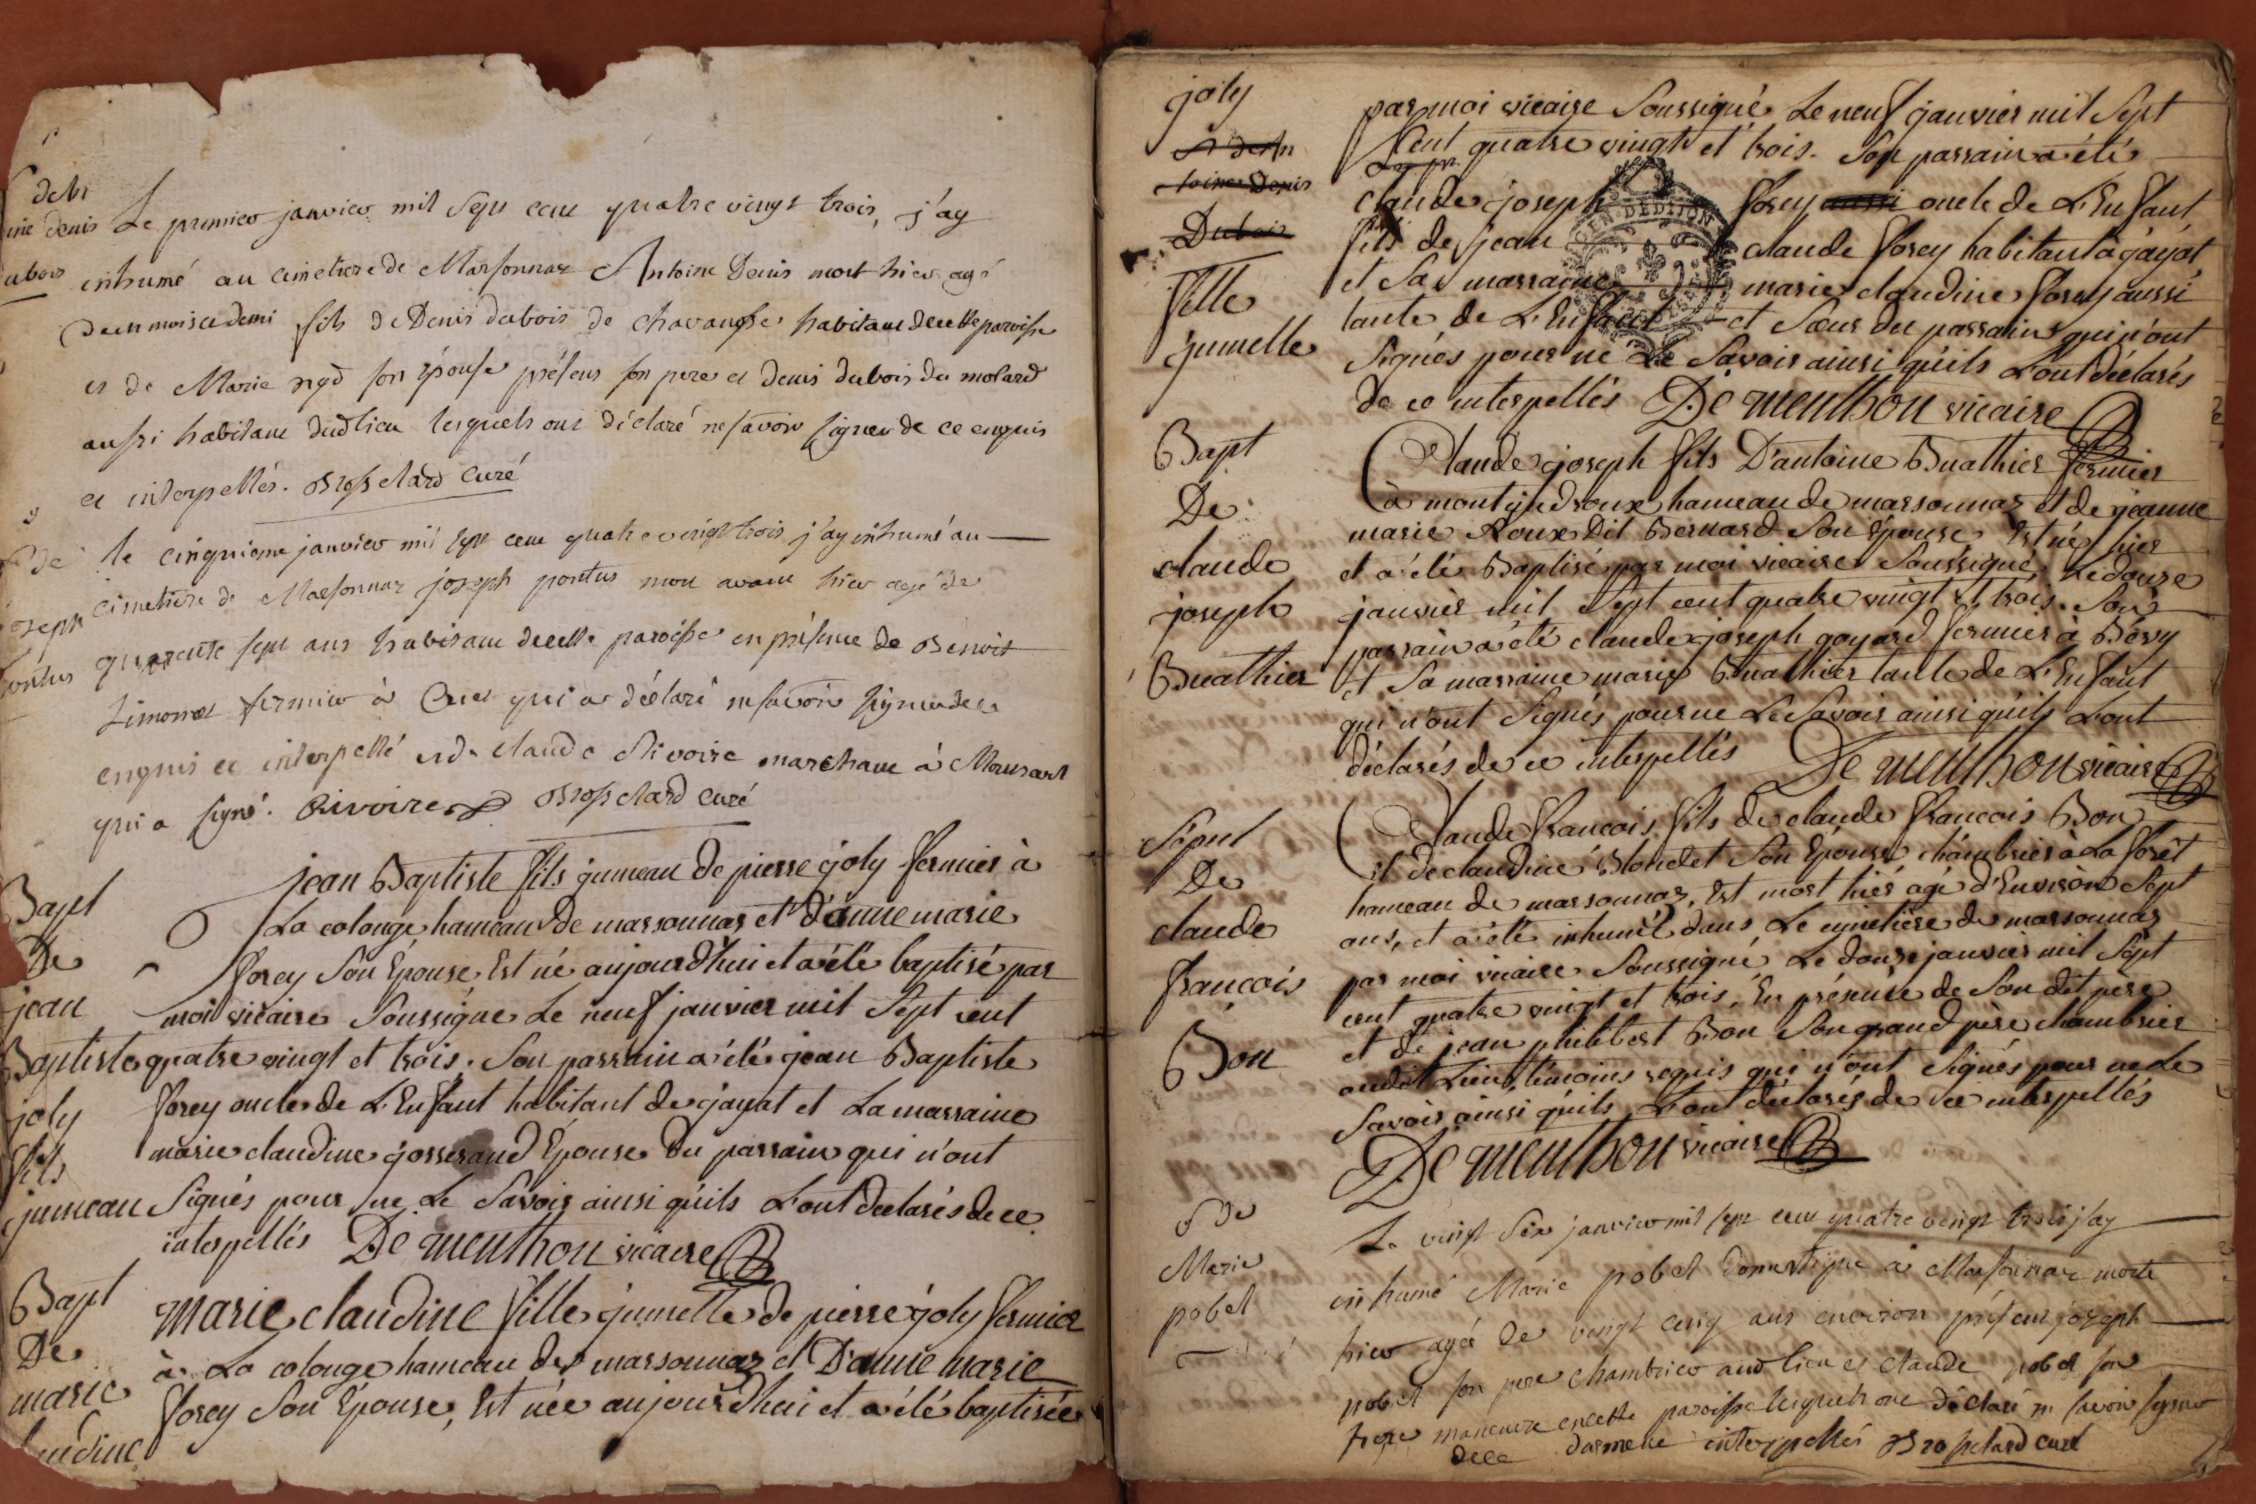 S
de br
ine denis
ubois
Le premier janvier mil sept cent quatre vingt trois, j'ay
inhumé au cimetiere de Marsonnaz Antoine Denis mort hier agé
d'un mois et demi fils de Denis dubois de chavanosse habitant de cette paroisse
et de Marie ngd son épouse présens son pere et denis dubois du molard
aussi habitant dud lieu lesquels ont déclaré ne savoir signer de ce enquis
et interpellés. Brosselard curé
S de
Joseph
pontus
le cinquieme janvier mil sept cent quatre vingt trois j'ay inhumé au
cimetiere de Marsonnaz joseph pontus mort avant hier agé de
quarente sept ans habitant de cette paroisse en présence de Benoit
Limonet fermier à Cuet qui a déclaré ne savoir signer de ce
enquis et interpellé et de claude Rivoire marchant à
qui a signé. Rivoire Brosselard curé
Bapt
De
jean
Baptiste
joly
fils
jumeau
jean Baptiste fils jumeau de pierre joly fermier à
La colonge hameau de marsonnas et d'anne marie
forey Son Epouse, Est né aujourd'hui et a été baptisé par
moi vicaire Soussigné Le neuf janvier mil Sept cent
quatre vingt et trois. Son parrain a été jean Baptiste
forey oncle de L'Enfant habitant de jayat et La marraine
marie claudine josserand Epouse du parrain qui n'ont
Signés pour ne Le Savoir ainsi qu'ils L'ont declarés de ce
interpellés De menthon vicaire
Bapt
De
marie
claudine
Marie claudine fille jumelle de pierre joly fermier
à La colonge hameau de marsonnaz et D'anne marie
forey Son Epouse, Est née aujourd'hui et a été baptisée
joly
Dubois
fille
jumelle
par moi vicaire Soussigné Le neuf janvier mil Sept
Cent quatre vingt et trois. Son parrain a été
claude joseph forey oncle de L'Enfant
fils de jean claude forey habitant à jayat
et Sa marraine marie claudine forey aussi
tante de L'Enfant et Sœur du parrain qui n'ont
Signés pour ne Le Savoir ainsi qu'ils L'ont déclarés
de ce interpellés De menthon vicaire
Bapt
De
claude
joseph
Buathier
Claude joseph fils D'antoine Buathier fermier
à hameau de marsonnaz et de jeanne
marie Roux Dit Bernard Son Epouse Est né hier
et a été Baptisé par moi vicaire Soussigné, Le douze
janvier mil Sept cent quatre vingt et trois. Son
parrain a été claude joseph goyard fermier à Bévy
et Sa marraine marie Buathier tante de L'Enfant
qui n'ont Signés pour ne Le Savoir ainsi qu'ils L'ont
déclarés de ce interpellés De menthon vicaire
Sepul
De
claude
françois
Bon
Claude françois fils de claude françois Bon
et de claudine Blondet Son Epouse chambrier à La forêt
hameau de marsonnaz, Est mort hier agé d'Environ Sept
ans, et a été inhumé dans Le cymetiere de marsonnaz
par moi vicaire Soussigné Le douze janvier mil Sept
cent quatre vingt et trois. En présence de Son dit pere
et de jean philibert Bon Son grand père chambrier
audit Lieu, temoins requis qui n'ont Signés pour ne Le
Savoir ainsi qu'ils L'ont déclarés de ce interpellés
De menthon vicaire
S de
Marie
pobel
Le vingt Six janvier mil sept cent quatre vingt trois j'ay
inhumé Marie pobel domestique à Marsonnaz morte
hier agée de vingt cinq ans environ présens joseph
pobel son pere chambrier aud lieu et claude pobel son
frere manœuvre en cette paroisse lesquels ont déclaré ne savoir signer
de ce interpellés Brosselard curé